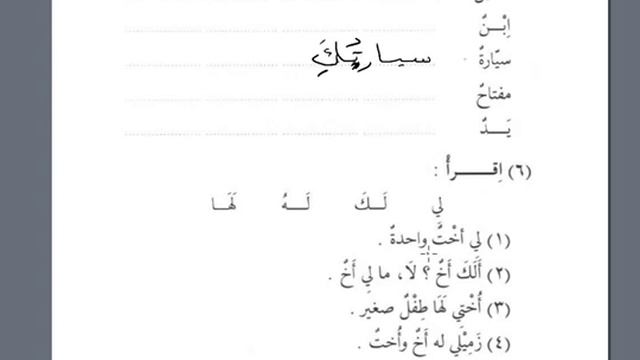 اِبْـنٌ
سيّارةٌ سيارتُكَِ
مفتاحٌ
يَــدٌ
(٦) اِقــرأْ :
لِي لَــكَ لَــهُ لَهَـا
(١) لِي أختٌ واحدةٌ .
(٢) أَلَكَ أَخٌ ؟ لَا، ما لِي أَخٌ .
(٣) أُخْتِي لَهَا طِفْلٌ صغير .
(٤) زَمِيْلِي له أَخٌ وأُختٌ .